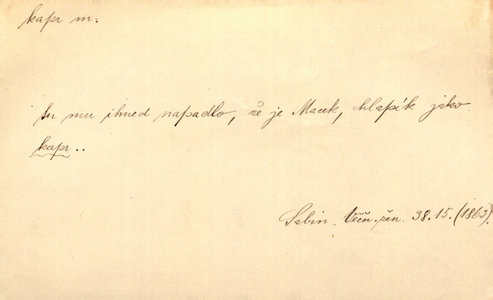 kapr m.
tu mu ihned napadlo, že je Macek, chlapík jako
kapr..
Sabin. Věčn. žen. 38.15. (1863)